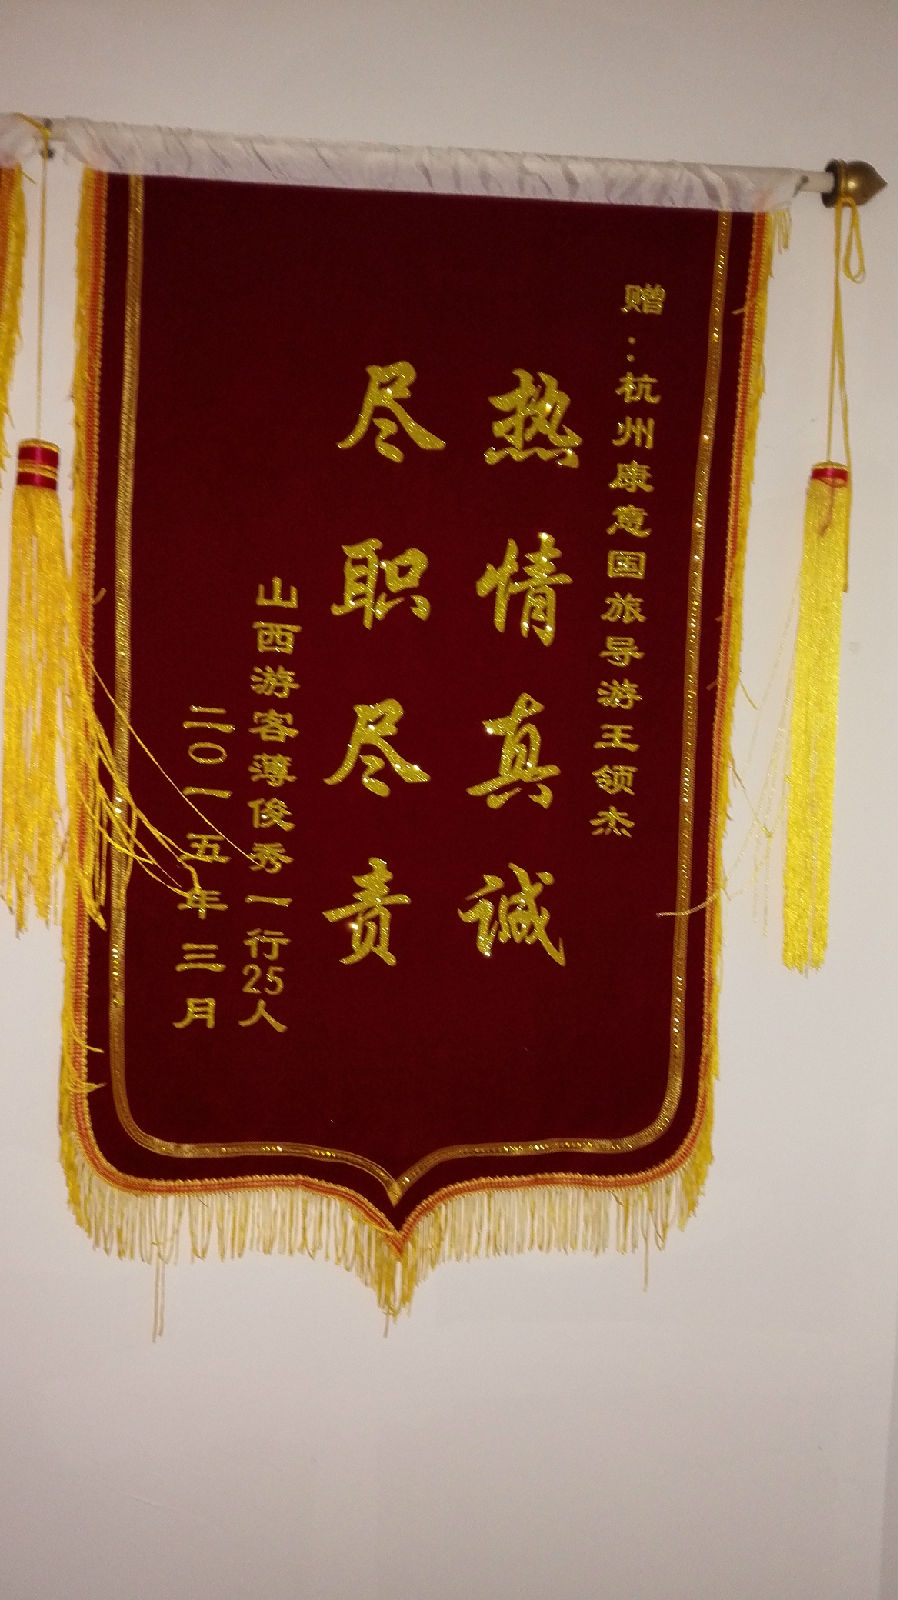 赠：杭州康意国旅导游王领杰
热情真诚
尽职尽责
山西游客薄俊秀一行25人
二〇一五年三月